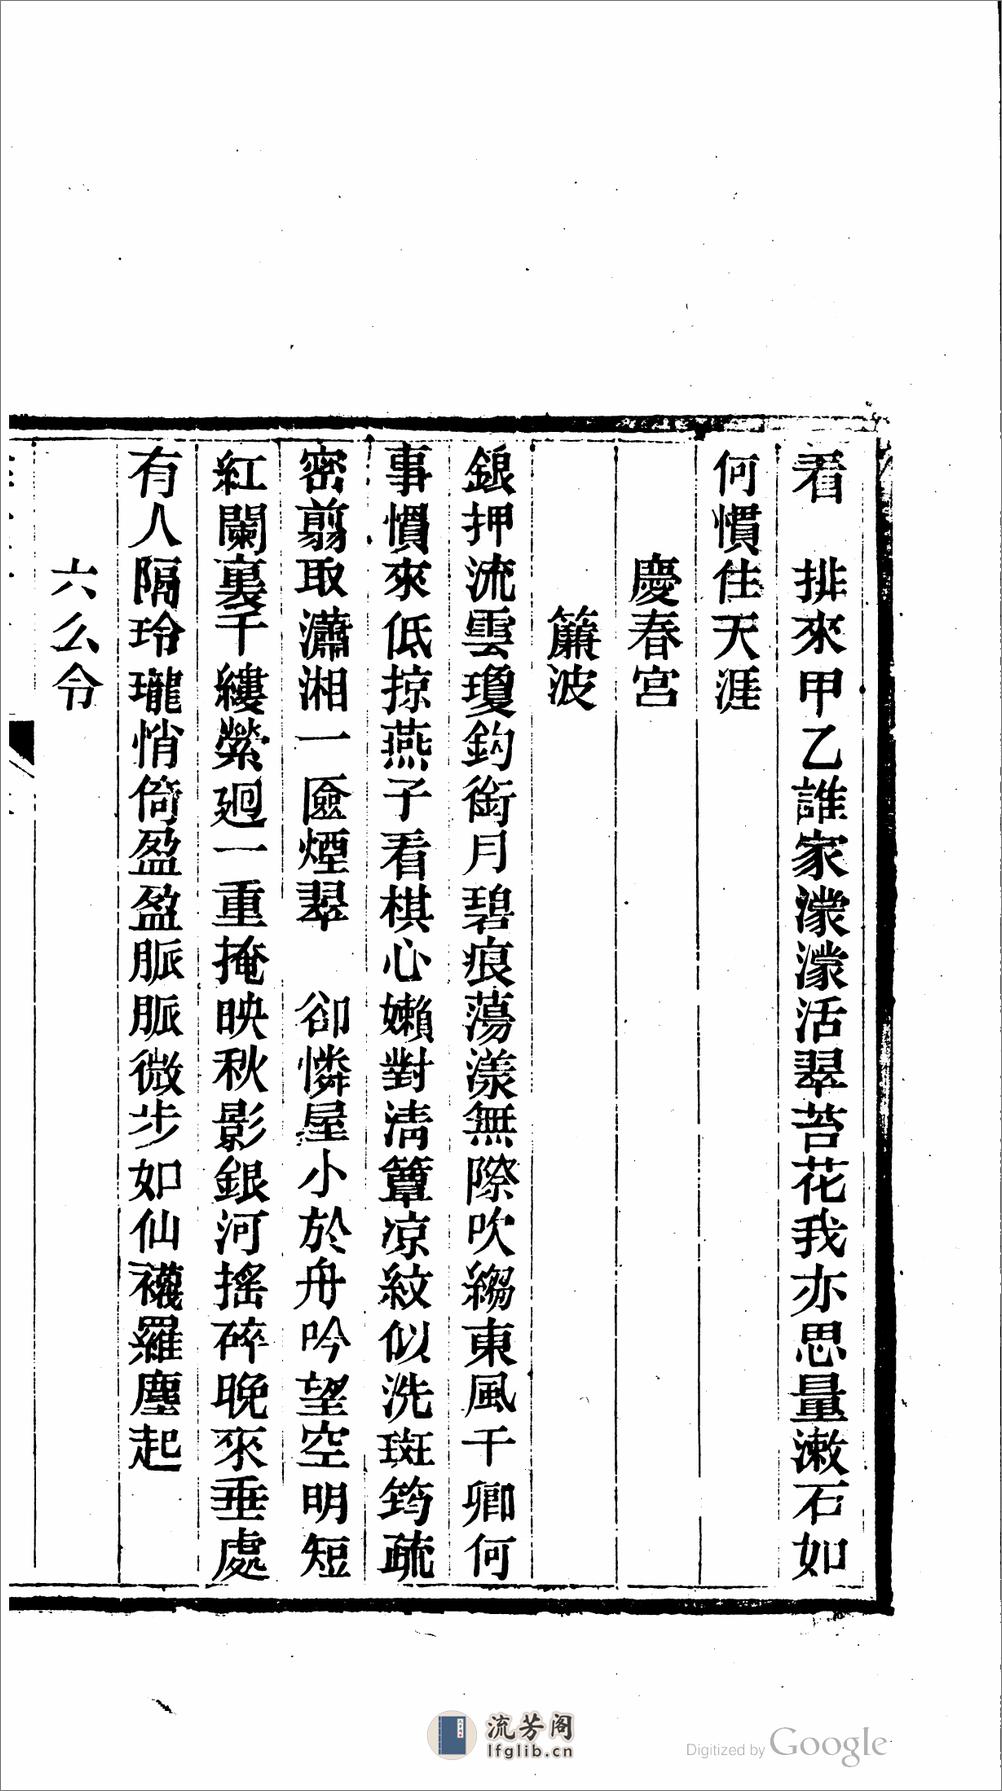 看　排來甲乙誰家濛濛活翠苔花我亦思量漱石如
何慣住天涯
慶春宮
簾波
銀押流雲瓊鈎銜月碧痕蕩漾無際吹縐東風干卿何
事慣來低掠燕子看棋心嬾對清簟凉紋似洗斑筠疏
密翦取瀟湘一匳煙翠　卻憐屋小於舟吟望空明短
紅闌裏千縷縈廻一重掩映秋影銀河搖碎晚來垂處
有人隔玲瓏悄倚盈盈脈脈微步如仙襪羅塵起
六么令
流芳阁
lfglib.cn
Digitized by Google